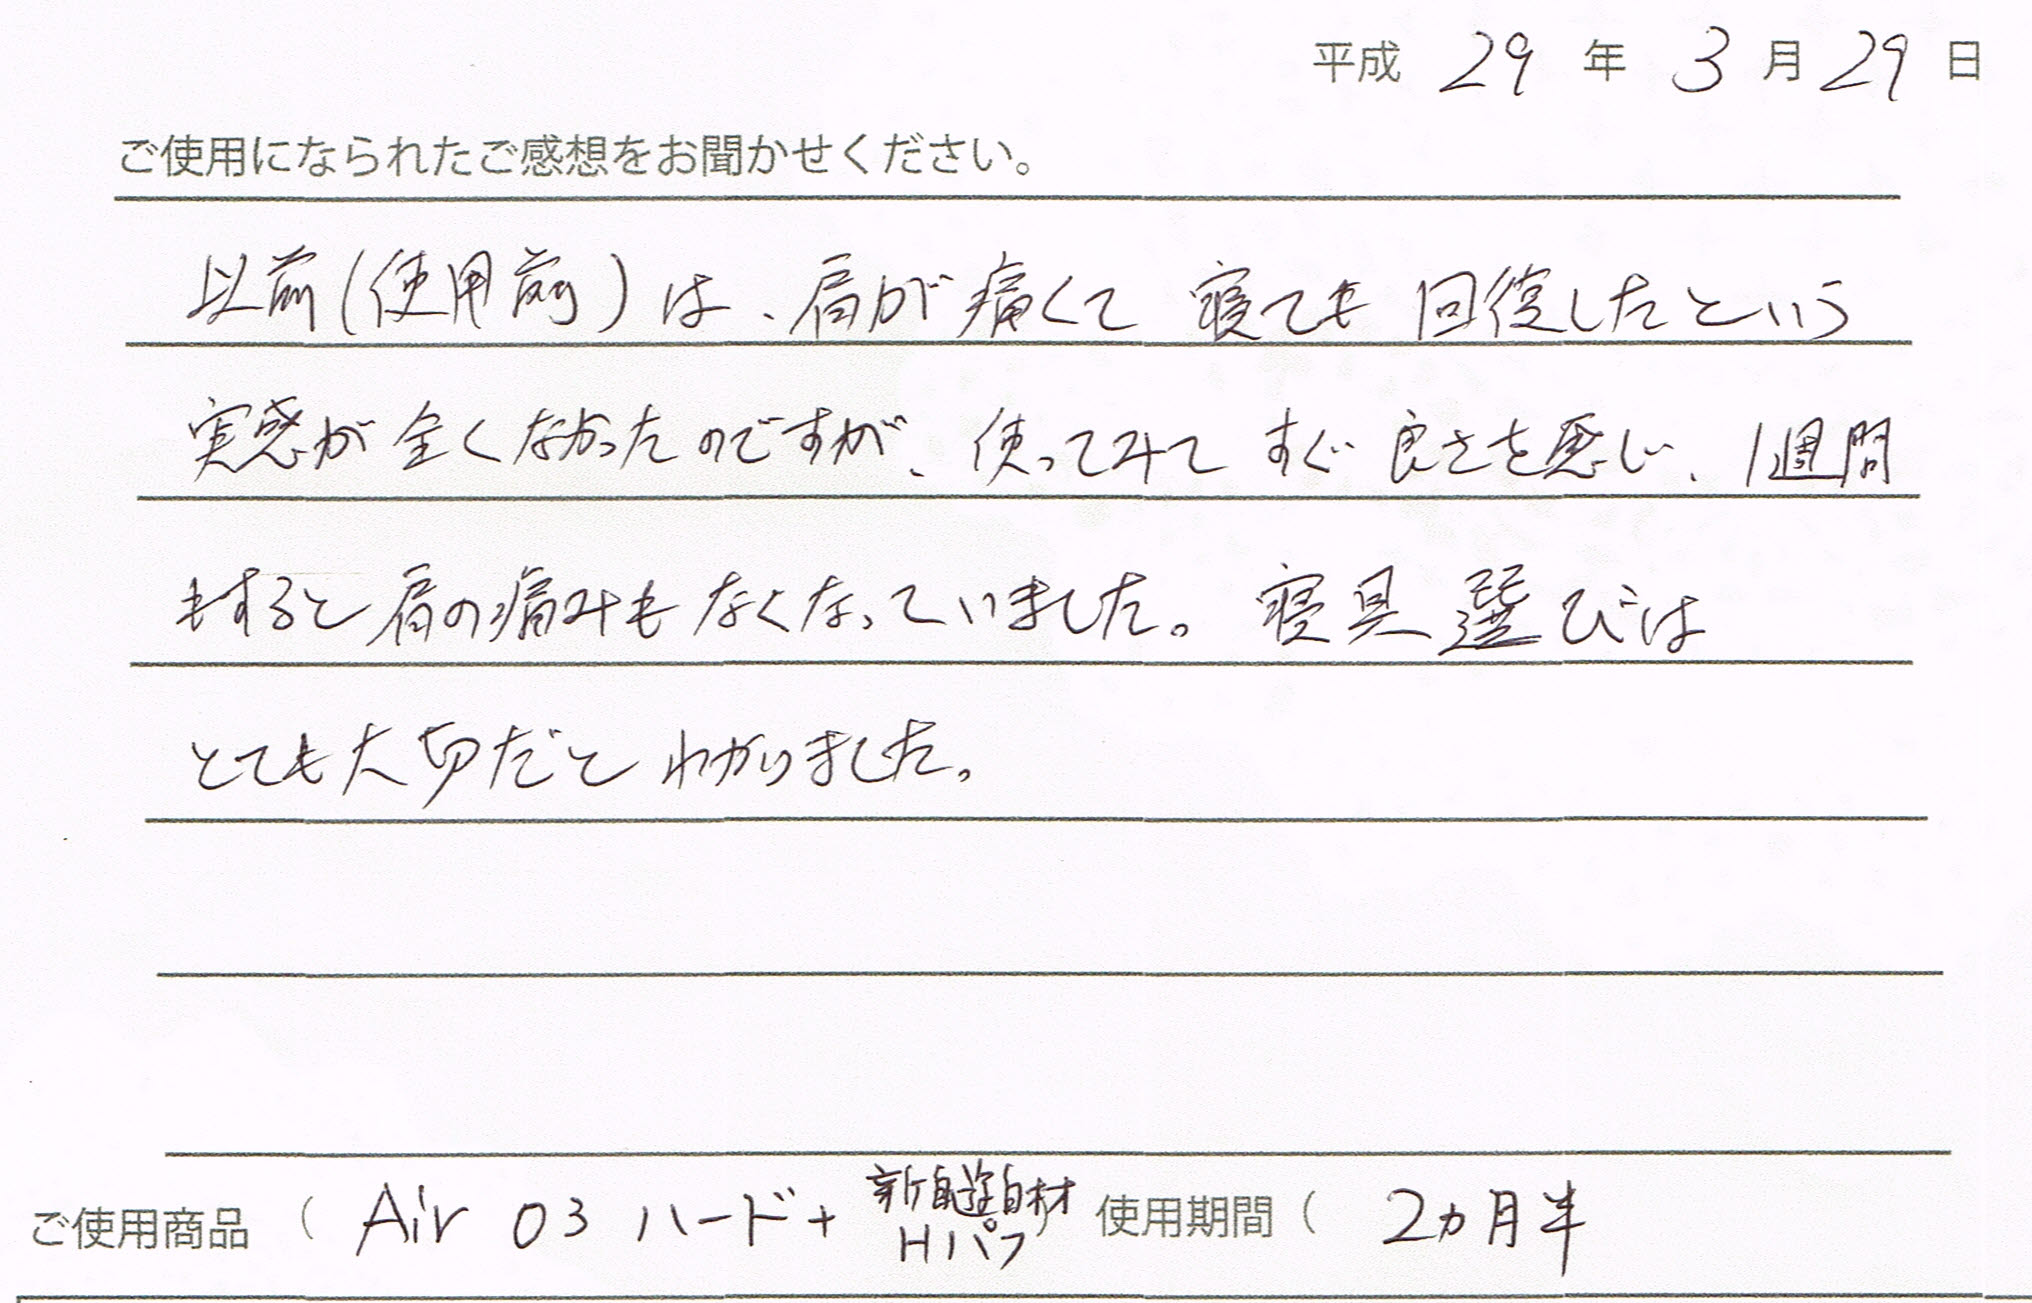 平成 29 年 3 月 29 日
ご使用になられたご感想をお聞かせください。
以前(使用前)は、肩が痛くて 寝ても 回復したという
実感が 全くなかったのですが、使ってみて すぐ 良さを感じ、1週間
もすると 肩の痛みも なくなっていました。寝具選びは
とても大切だと わかりました。
ご使用商品 ( Air 03 ハード+ 新自遊自材 Hパフ) 使用期間 ( 2ヵ月半